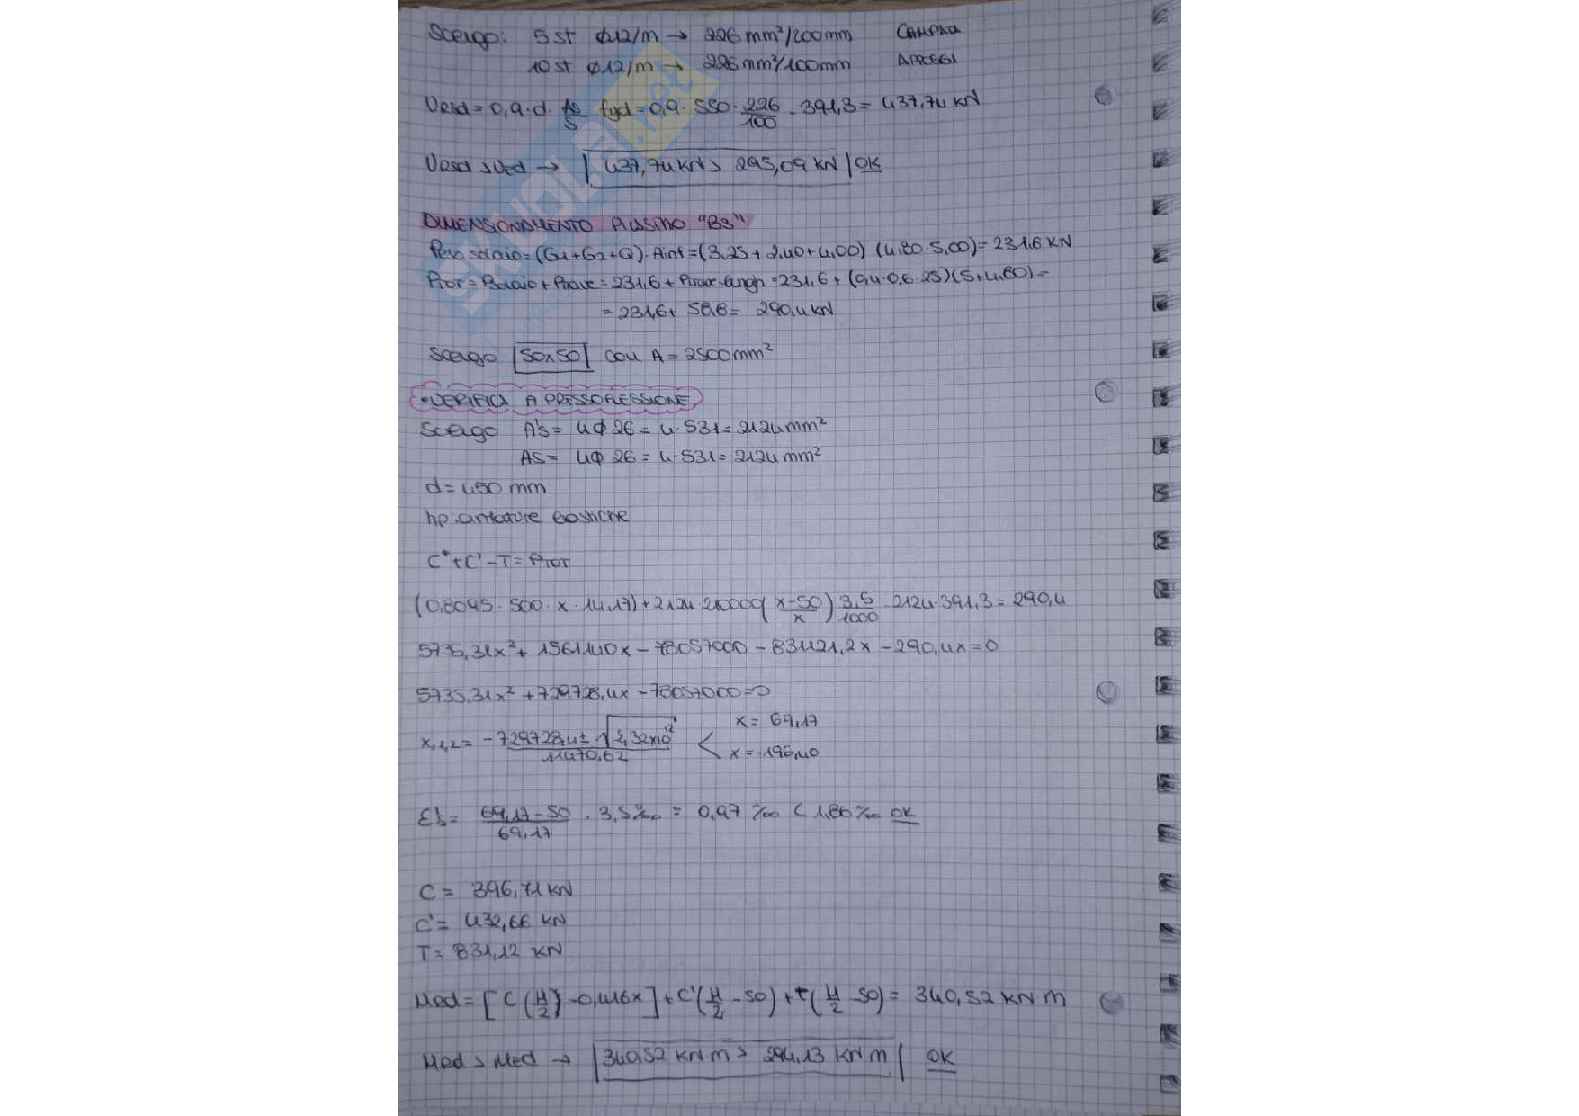 Scelgo: 5 st φ12/m → 226 mm²/200mm CAMPATA
10 st φ12/m → 226 mm²/100mm APPOGGI
Vrsd = 0,9·d· As/s fyd = 0,9 · 550 · 226/100 · 391,3 = 437,74 kN
Vrsd > Ved → 437,74 kN > 295,09 kN OK
DIMENSIONAMENTO PILASTRO "B3"
Peso solaio = (G1+G2+Q)·Ainf = (3,25 + 2,40 + 4,00) (4,80·5,00) = 231,6 KN
Ptot = Psolaio + Ptrave = 231,6 + Ptrave·lungh = 231,6 + (0,4·0,6·25)(5+4,80) =
= 231,6 + 58,8 = 290,4 kN
Scelgo 50x50 con A = 2500mm²
• VERIFICA A PRESSOFLESSIONE
Scelgo A's = 4φ26 = 4·531 = 2124 mm²
As = 4φ26 = 4·531 = 2124 mm²
d = 450 mm
hp. armature elastiche
C + C' - T = Ptot
(0,8095 · 500 · x · 14,17) + 2124·210000 (x-50/x) 3,5/1000 - 2124·391,3 = 290,4
5735,31x² + 1561140x - 78057000 - 831121,2x - 290,4x = 0
5735,31x² + 729728,4x - 78057000 = 0
x1,2 = -729728,4 ± √2,32x10¹² / 11470,62 < x = 69,17
x = -196,40
ε's = 69,17-50/69,17 · 3,5‰ = 0,97‰ < 1,86‰ OK
C = 396,71 kN
C' = 432,66 kN
T = 831,12 kN
Mrd = [C(H/2) - 0,416x] + C'(H/2 - 50) + T(H/2 - 50) = 340,52 kN m
Mrd > Med → 340,52 kN m > 294,13 kN m OK